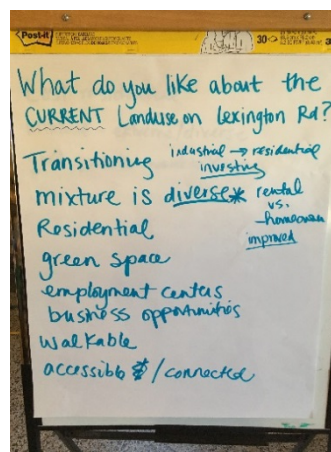 Post-it
30
What do you like about the
CURRENT Landuse on Lexington Rd?
Transitioning industrial → residential
investing
mixture is diverse* rental
vs.
homeowner
improved
Residential
green space
employment centers
business opportunities
walkable
accessible $ / connected